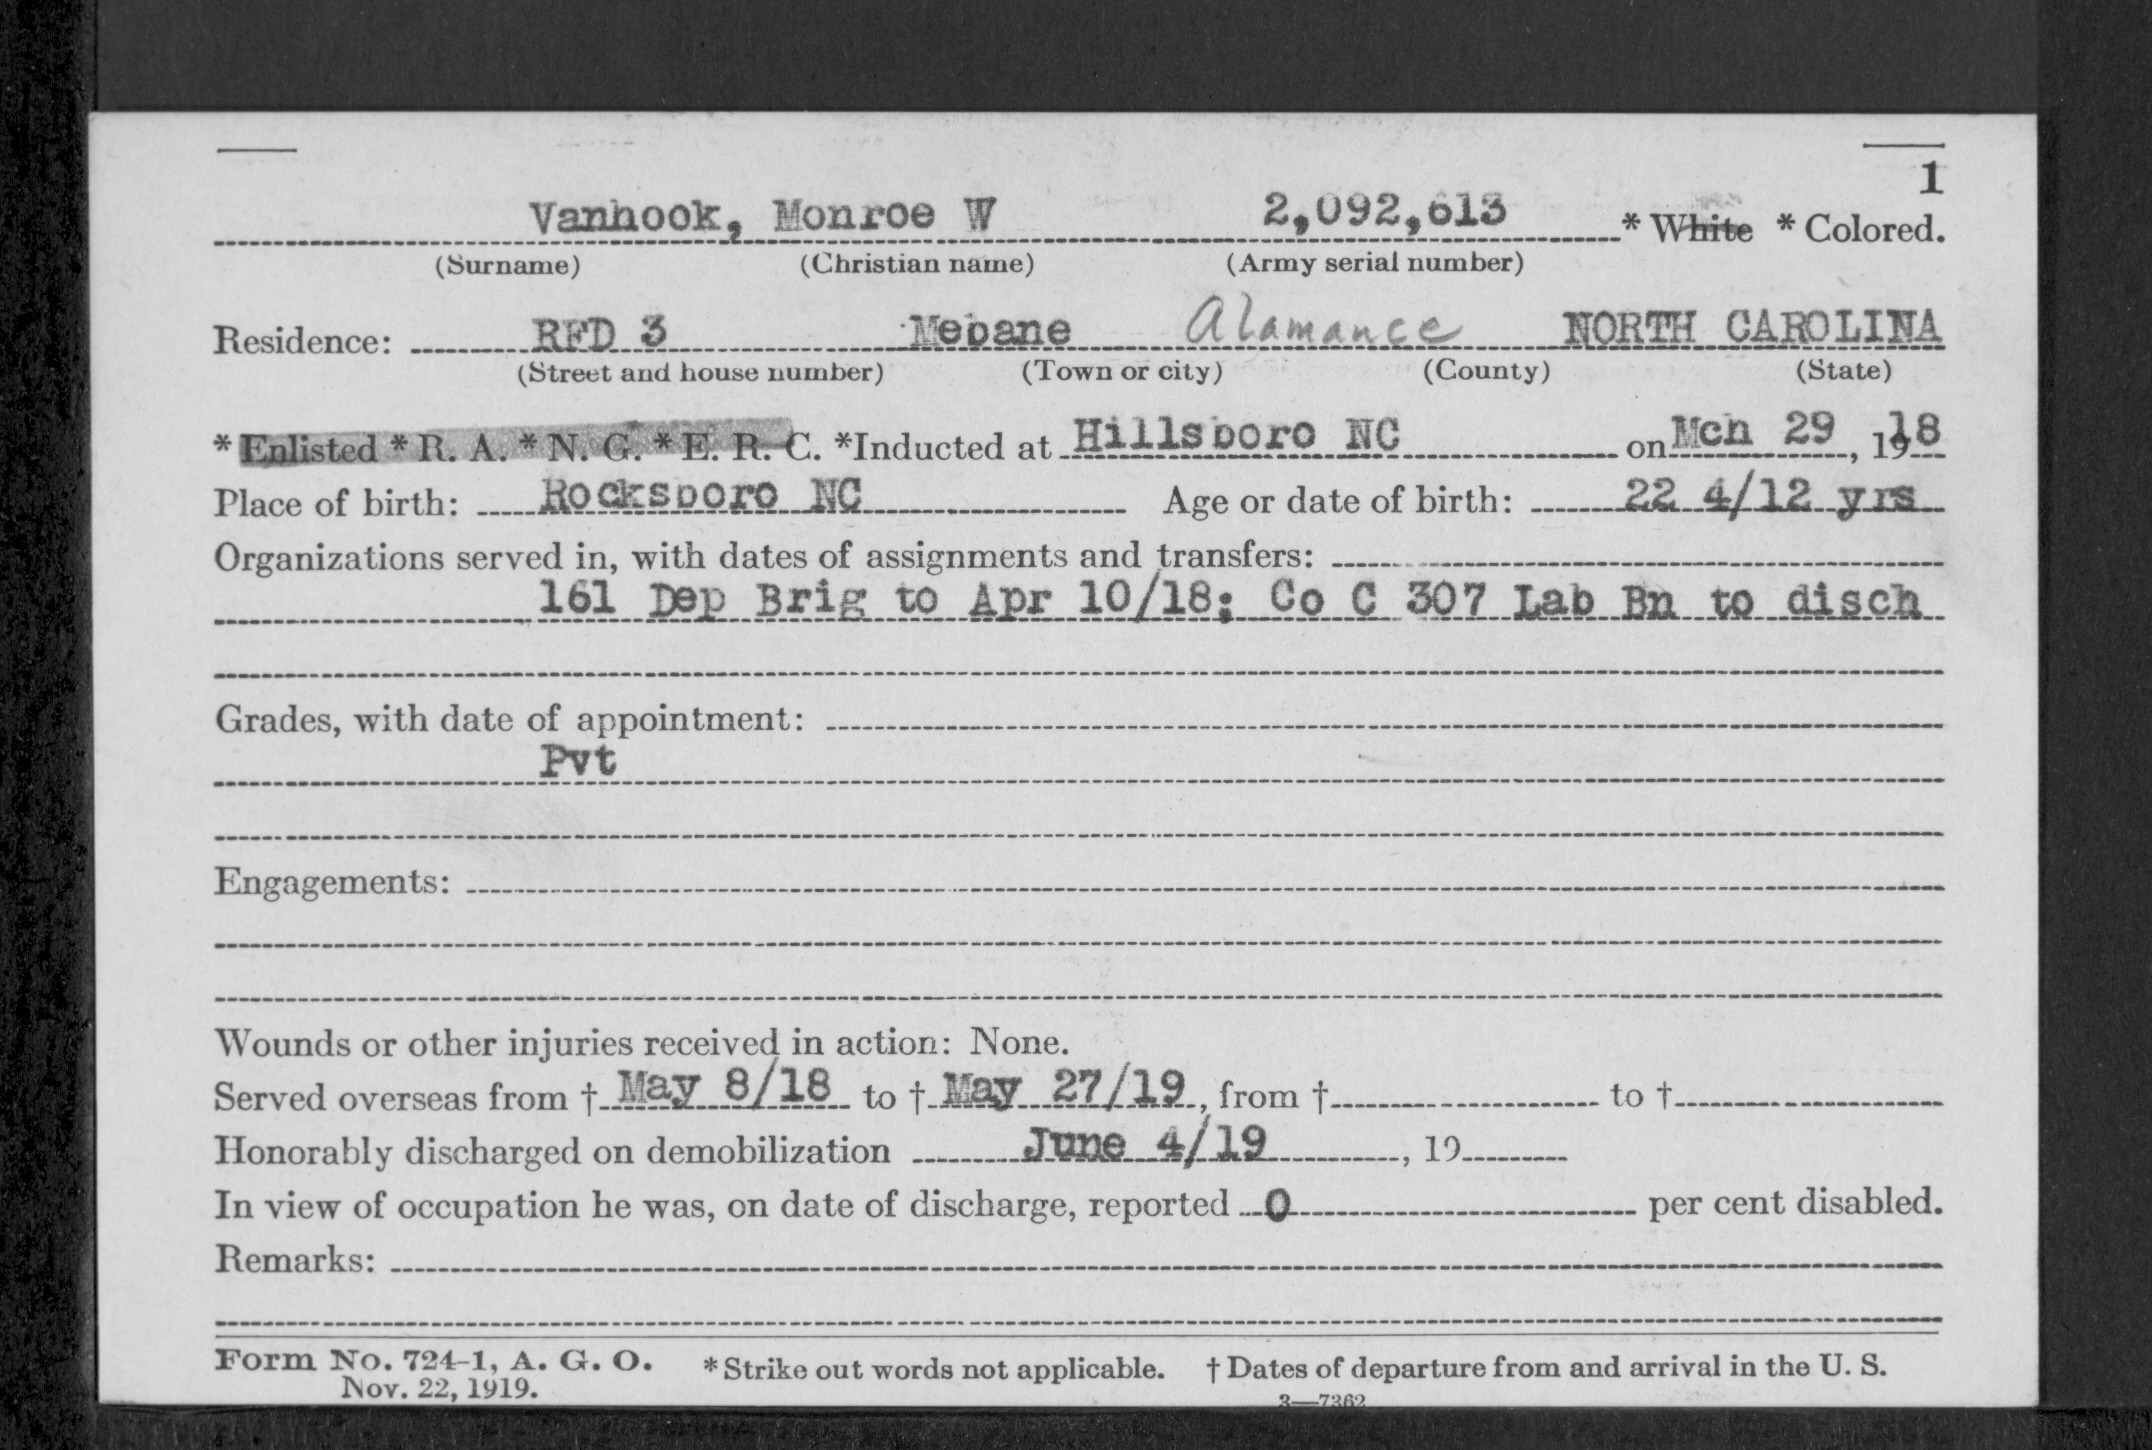 1
Vanhook, Monroe W 2,092,613 * White * Colored.
(Surname) (Christian name) (Army serial number)
Residence: RFD 3 Mebane Alamance NORTH CAROLINA
(Street and house number) (Town or city) (County) (State)
* Enlisted * R. A. * N. G. * E. R. C. *Inducted at Hillsboro NC on Mch 29, 1918
Place of birth: Rocksboro NC Age or date of birth: 22 4/12 yrs
Organizations served in, with dates of assignments and transfers:
161 Dep Brig to Apr 10/18; Co C 307 Lab Bn to disch
Grades, with date of appointment:
Pvt
Engagements:
Wounds or other injuries received in action: None.
Served overseas from † May 8/18 to † May 27/19, from † to †
Honorably discharged on demobilization June 4/19, 19
In view of occupation he was, on date of discharge, reported 0 per cent disabled.
Remarks:
Form No. 724-1, A. G. O. * Strike out words not applicable. † Dates of departure from and arrival in the U. S.
Nov. 22, 1919.
3—7362